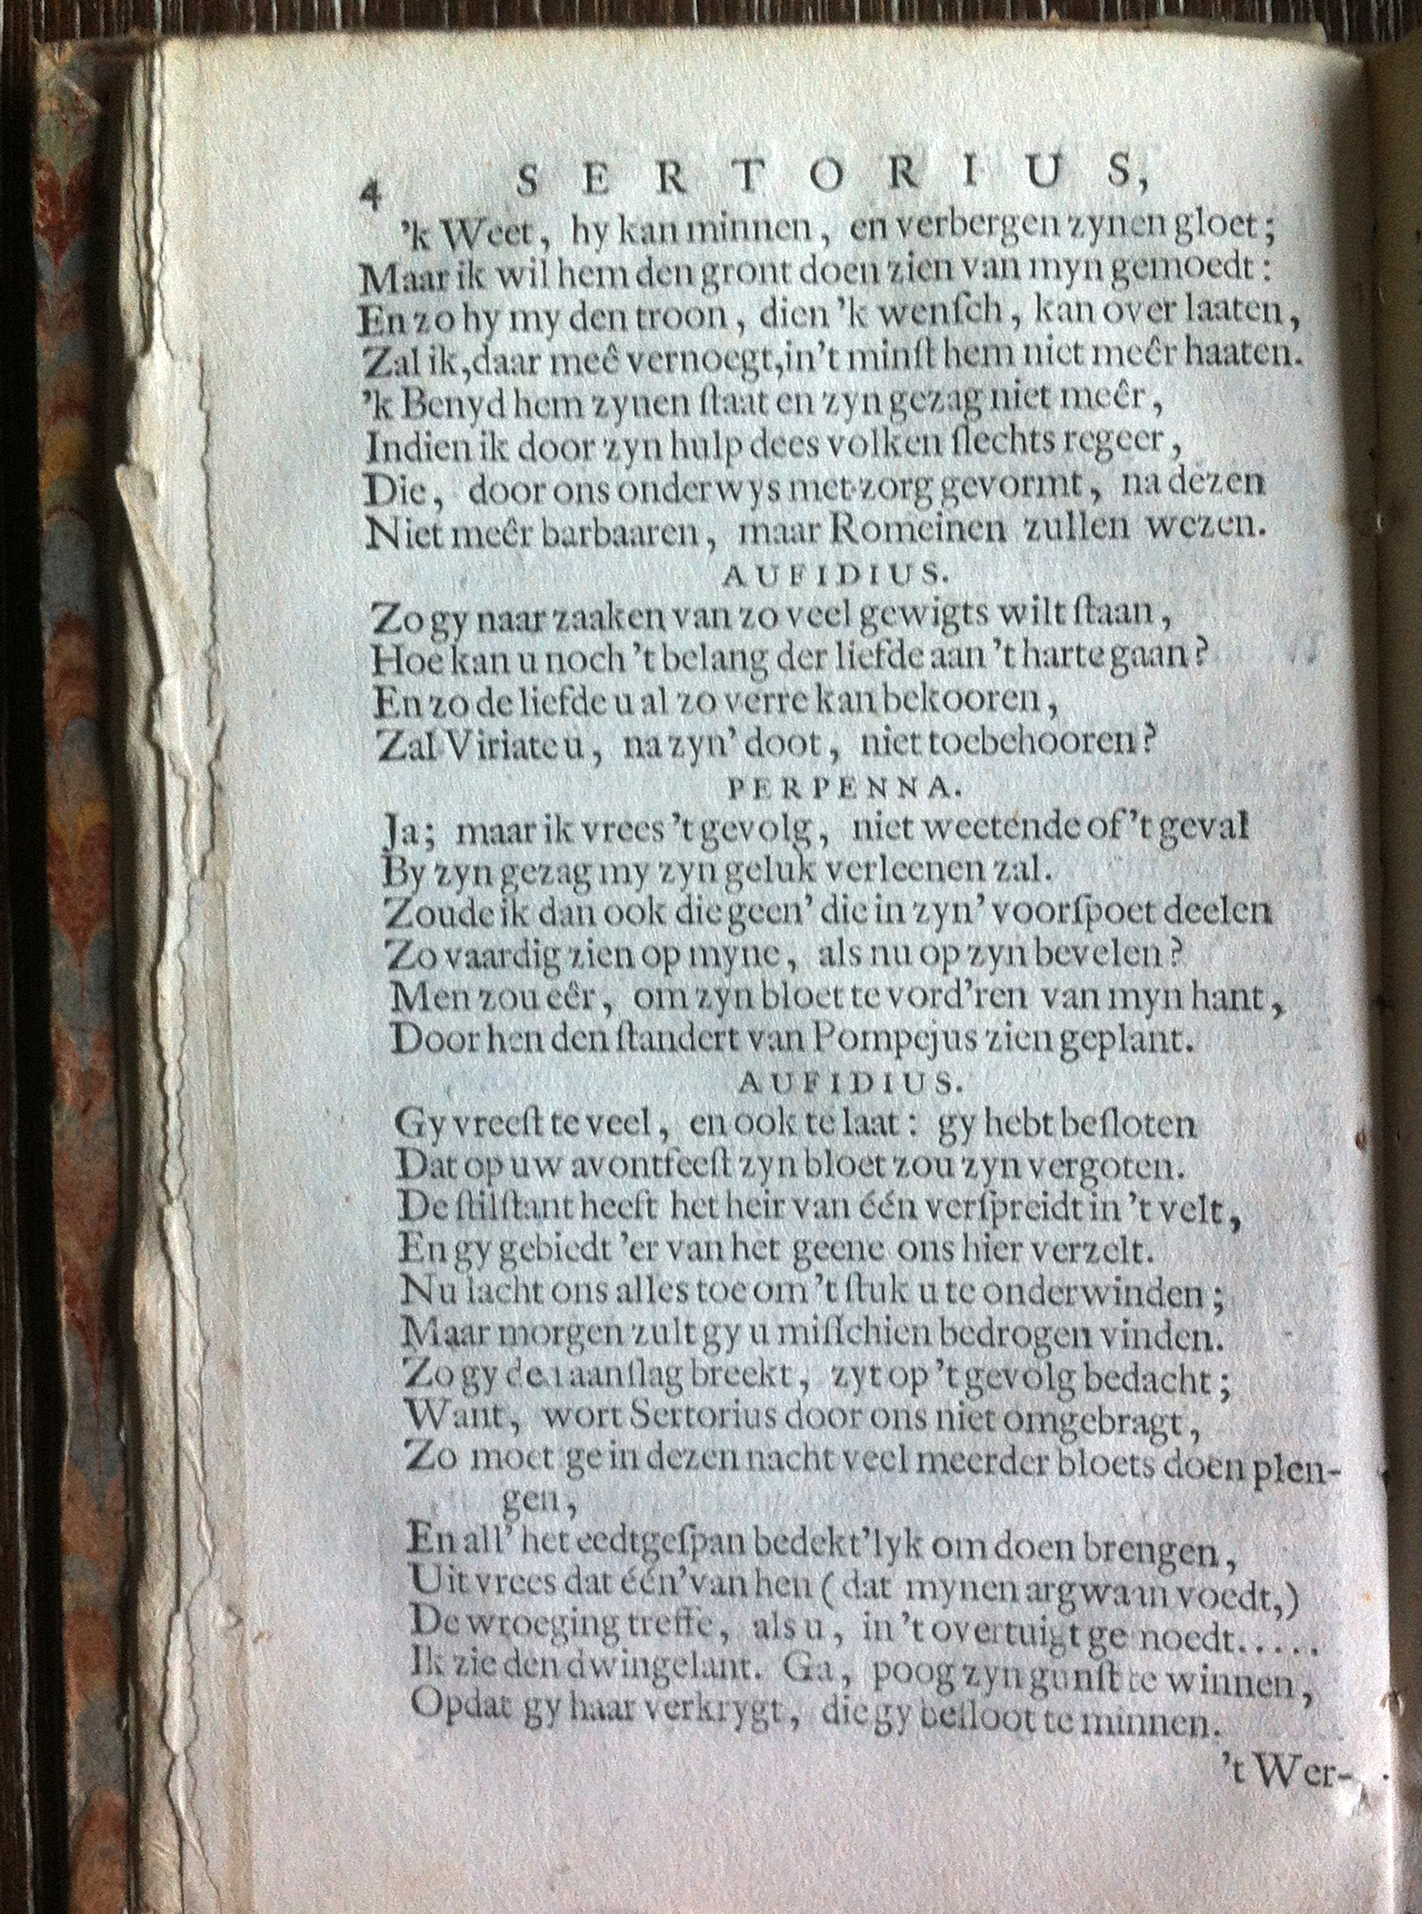 4 SERTORIUS,
'k Weet, hy kan minnen, en verbergen zynen gloet;
Maar ik wil hem den gront doen zien van myn gemoedt:
En zo hy my den troon, dien 'k wenſch, kan over laaten,
Zal ik, daar meê vernoegt, in't minſt hem niet meêr haaten.
'k Benyd hem zynen ſtaat en zyn gezag niet meêr,
Indien ik door zyn hulp dees volken ſlechts regeer,
Die, door ons onderwys met zorg gevormt, na dezen
Niet meêr barbaaren, maar Romeinen zullen wezen.
AUFIDIUS.
Zo gy naar zaaken van zo veel gewigts wilt ſtaan,
Hoe kan u noch 't belang der liefde aan 't harte gaan?
En zo de liefde u al zo verre kan bekooren,
Zal Viriate u, na zyn' doot, niet toebehooren?
PERPENNA.
Ja; maar ik vrees 't gevolg, niet weetende of 't geval
By zyn gezag my zyn geluk verleenen zal.
Zoude ik dan ook die geen' die in zyn' voorſpoet deelen
Zo vaardig zien op myne, als nu op zyn bevelen?
Men zou eêr, om zyn bloet te vord'ren van myn hant,
Door hen den ſtandert van Pompejus zien geplant.
AUFIDIUS.
Gy vreeſt te veel, en ook te laat: gy hebt beſloten
Dat op uw avontfeeſt zyn bloet zou zyn vergoten.
De ſtilſtant heeft het heir van één verſpreidt in 't velt,
En gy gebiedt 'er van het geene ons hier verzelt.
Nu lacht ons alles toe om 't ſtuk u te onderwinden;
Maar morgen zult gy u miſſchien bedrogen vinden.
Zo gy den aanſlag breekt, zyt op 't gevolg bedacht;
Want, wort Sertorius door ons niet omgebragt,
Zo moet ge in dezen nacht veel meerder bloets doen plen-
gen,
En all' het eedtgeſpan bedekt'lyk om doen brengen,
Uit vrees dat één' van hen (dat mynen argwaan voedt,)
De wroeging treffe, als u, in 't overtuigt gemoedt.....
Ik zie den dwingelant. Ga, poog zyn gunſt te winnen,
Opdat gy haar verkrygt, die gy beſloot te minnen.
't Wer-